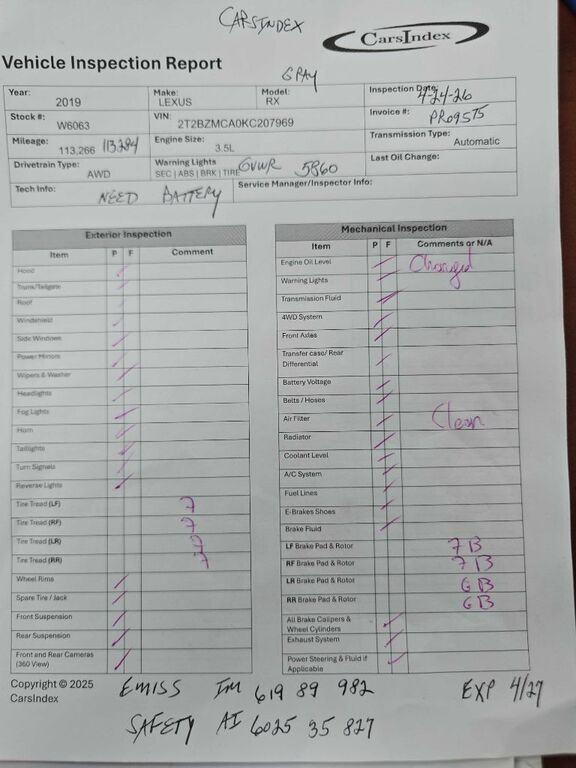 CARSINDEX
CarsIndex
Vehicle Inspection Report
GRAY
Year: 2019 Make: LEXUS Model: RX Inspection Date: 4-24-26
Stock #: W6063 VIN: 2T2BZMCA0KC207969 Invoice #: PR09575
Mileage: 113,266 113284 Engine Size: 3.5L Transmission Type: Automatic
Drivetrain Type: AWD Warning Lights SEC | ABS | BRK | TIRE GVWR 5860 Last Oil Change:
Tech Info: NEED BATTERY Service Manager/Inspector Info:
Exterior Inspection
Item P F Comment
Hood
Trunk/Tailgate
Roof
Windshield
Side Windows
Power Mirrors
Wipers & Washer
Headlights
Fog Lights
Horn
Taillights
Turn Signals
Reverse Lights
Tire Tread (LF) 7
Tire Tread (RF) 7
Tire Tread (LR) 7
Tire Tread (RR) 7
Wheel Rims
Spare Tire / Jack
Front Suspension
Rear Suspension
Front and Rear Cameras
(360 View)
Mechanical Inspection
Item P F Comments or N/A
Engine Oil Level Changed
Warning Lights
Transmission Fluid
4WD System
Front Axles
Transfer case/ Rear
Differential
Battery Voltage
Belts / Hoses
Air Filter Clean
Radiator
Coolant Level
A/C System
Fuel Lines
E-Brakes Shoes
Brake Fluid
LF Brake Pad & Rotor 7 B
RF Brake Pad & Rotor 7 B
LR Brake Pad & Rotor 6 B
RR Brake Pad & Rotor 6 B
All Brake Calipers &
Wheel Cylinders
Exhaust System
Power Steering & Fluid if
Applicable
Copyright © 2025
CarsIndex
EMISS IM 619 89 982 EXP 4/27
SAFETY AI 6025 35 827